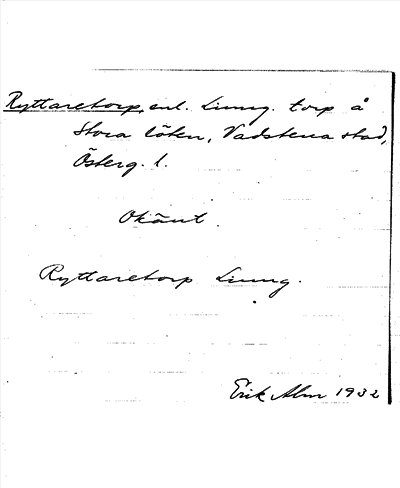 Ryttaretorp, enl. Ljung. torp å
Stora löten, Vadstena stad,
Österg. l.
Okänt.
Ryttaretorp Ljung.
Erik Alm 1932